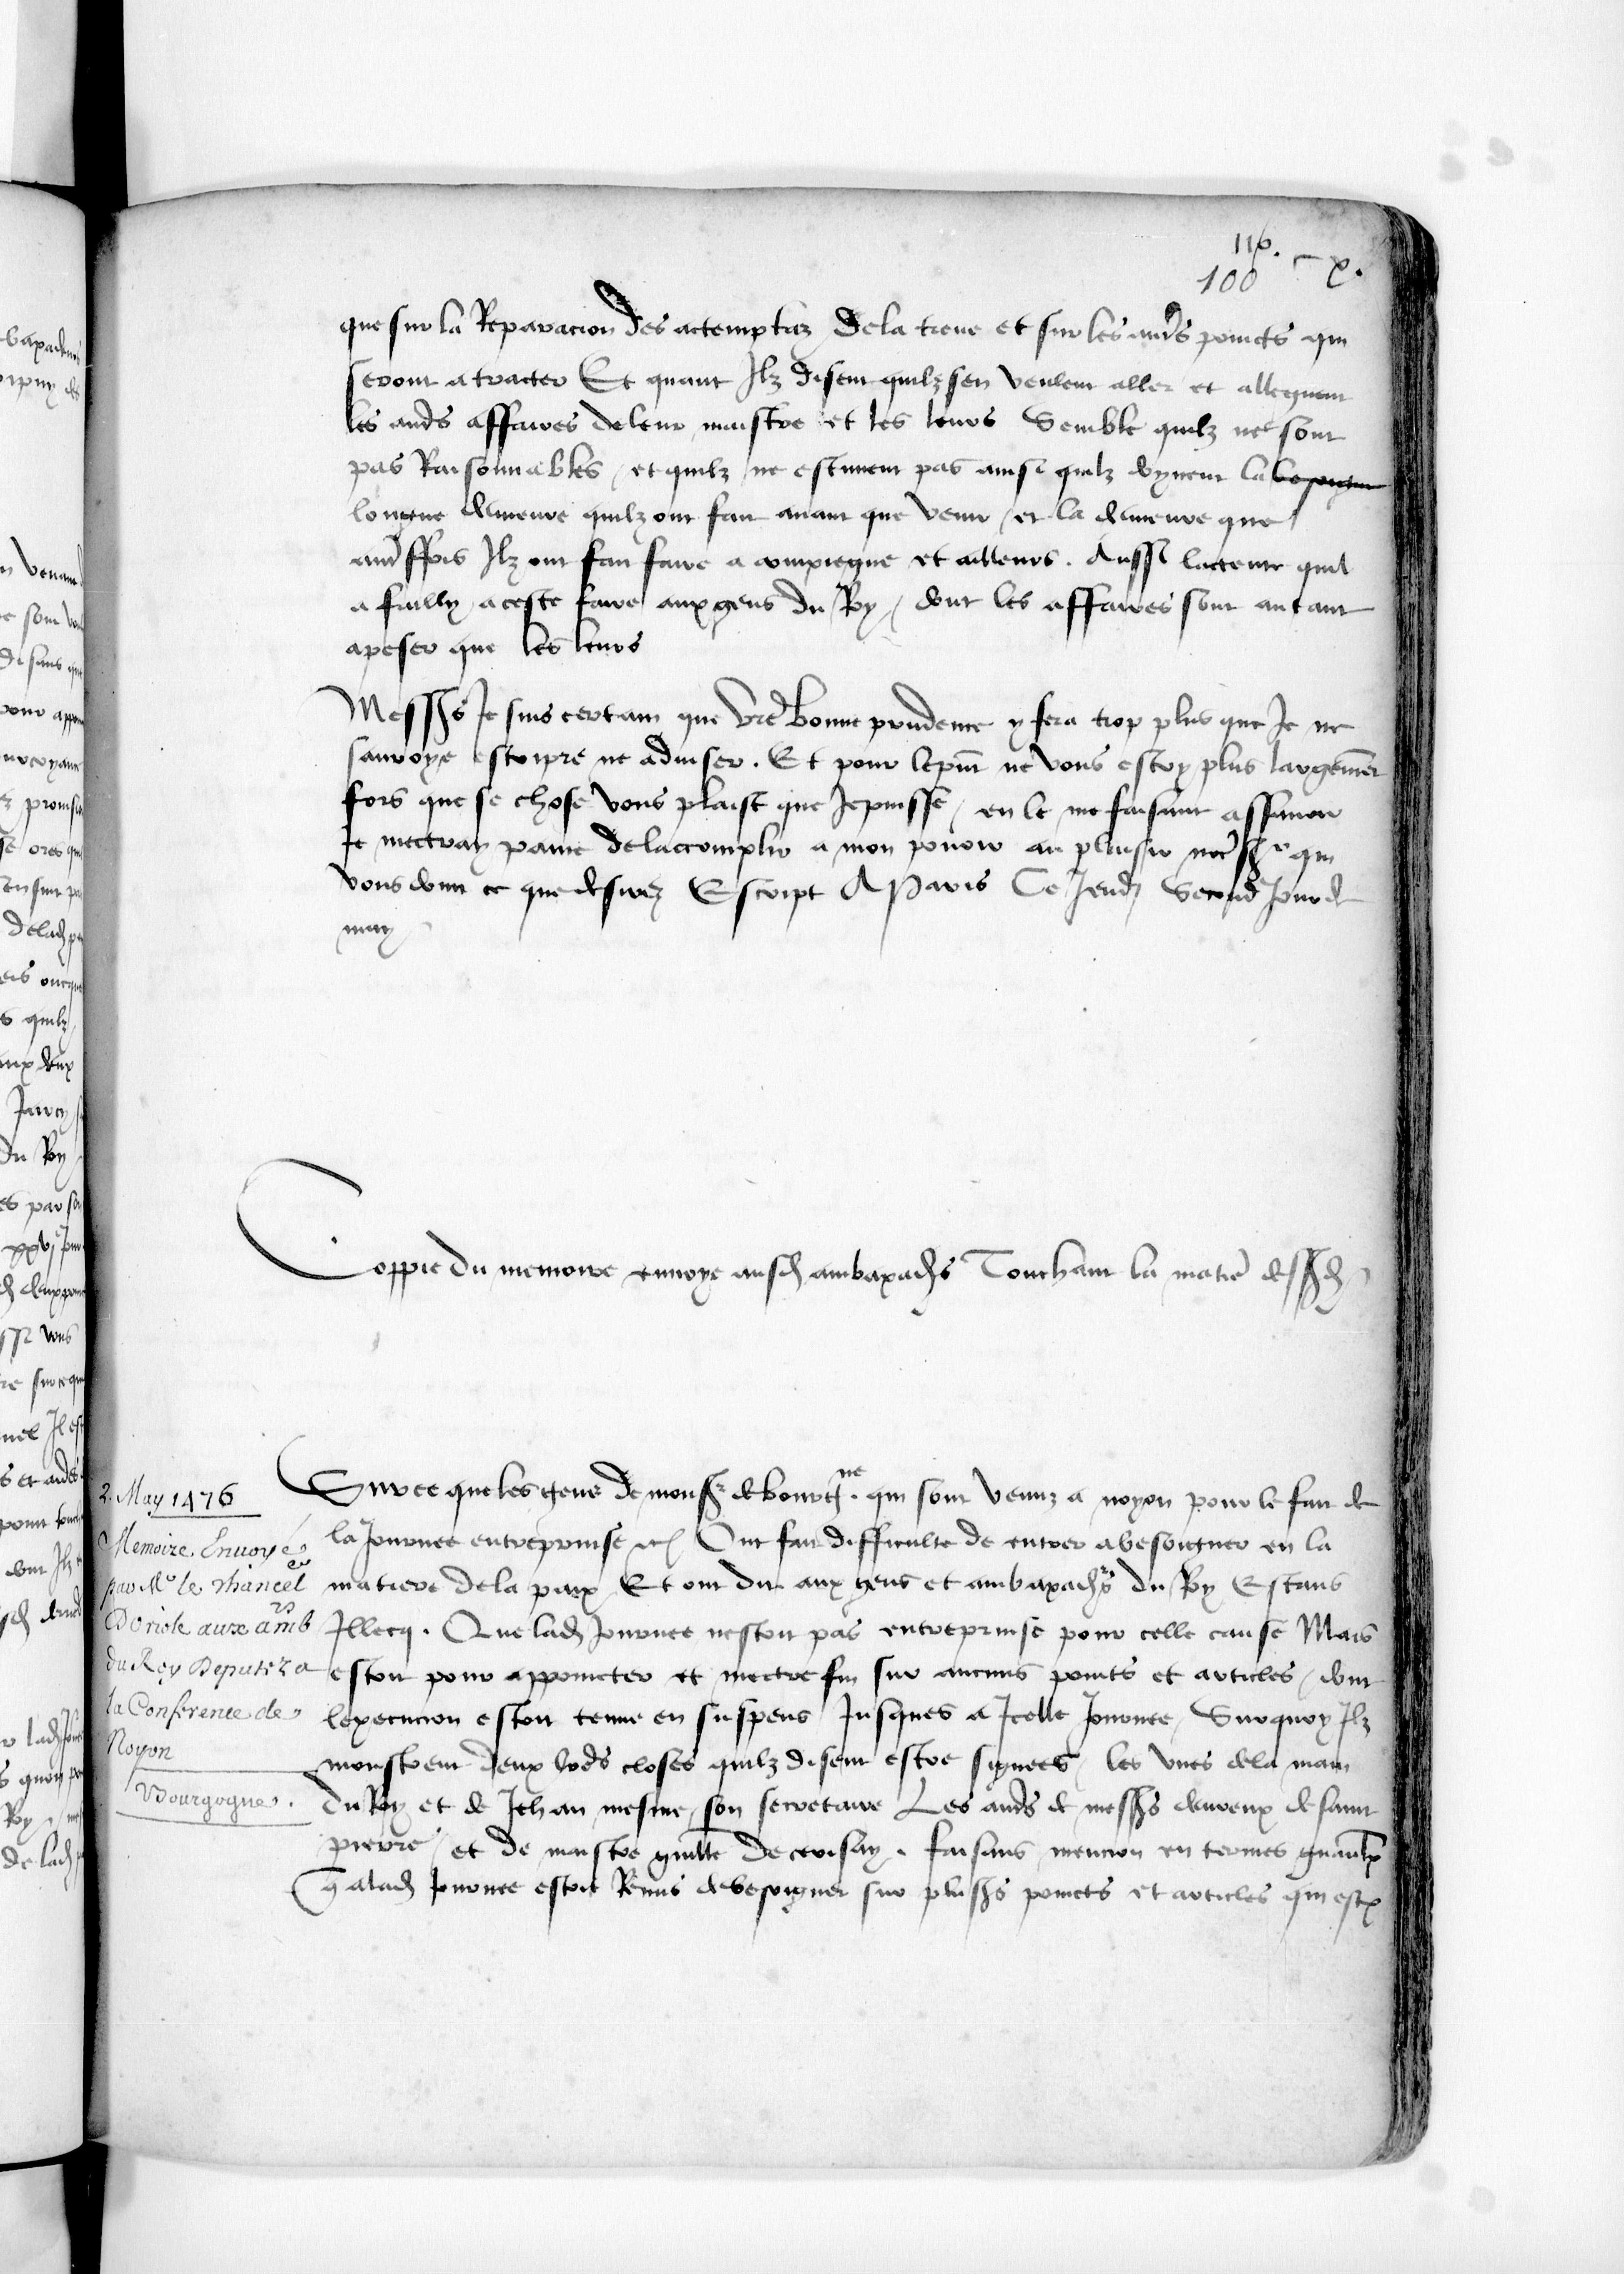 116.
100 Cx.
que sur la Reparacion des actemptaz dela treve et sur les autres poincts qui
seront a traicter Et quant Ilz disent quilz sen veulent aller et alleguent
les autres affaires de leur maistre et les leurs Semble quilz ne sont
pas Raisonnables / et quilz ne estiment pas ainsi quilz doyvent la besongne
longue demeure quilz ont fait avant que venir / et la demeure que
autresffois Ilz ont fait faire a compiegne et ailleurs . Aussi lactente quil
a failly a ceste faire aux gens du Roy / dont les affaires sont autant
apeser que les leurs
Messrs Je suis certain que vre bonne prudence y fera trop plus que Je ne
sauroye escripre ne adviser . Et pour le pnt ne vous escry plus largement
fors que se chose vous plaist que Je puisse / en le me faisant assavoir
Je mectray paine de laccomplir a mon povoir au plaisir nre sr qui
vous doint ce que desirez Escript A Paris Ce Jeudi Second Jour de
may
Coppie du memoire envoye ausd ambaxadrs Touchant la matiere dessusd
2. May 1476
Memoire Envoyé
par Mr le chancelr
Doriole aux ambrs
du Roy Deputez a
la Conference de
Noyon
Bourgogne .
Surce que les gens de monsr de bourgne . qui sont venuz a noyon pour le fait de
la Journee entreprinse etc Ont fait difficulte de entrer a besoigner en la
matiere dela paix Et ont dit aux gens et ambaxadrs du Roy Estans
Illecq . Que lad Journee nestoit pas entreprinse pour celle cause Mais
estoit pour appoincter et mectre fin sur aucuns points et articles / dont
lexecucion estoit tenue en suspens Jusques a Icelle Journee / Surquoy Ilz
monstrent deux lrds closes quilz disent estre signees / les unes dela main
du Roy et de Jehan mesme / son secretaire Les autres de messrs devreux de saint
pierre / et de maistre guille de cerisay . faisans mencion en termes gnaulx
q alad Journee estoit Remis de besoigner sur plusrs poincts et articles qui est